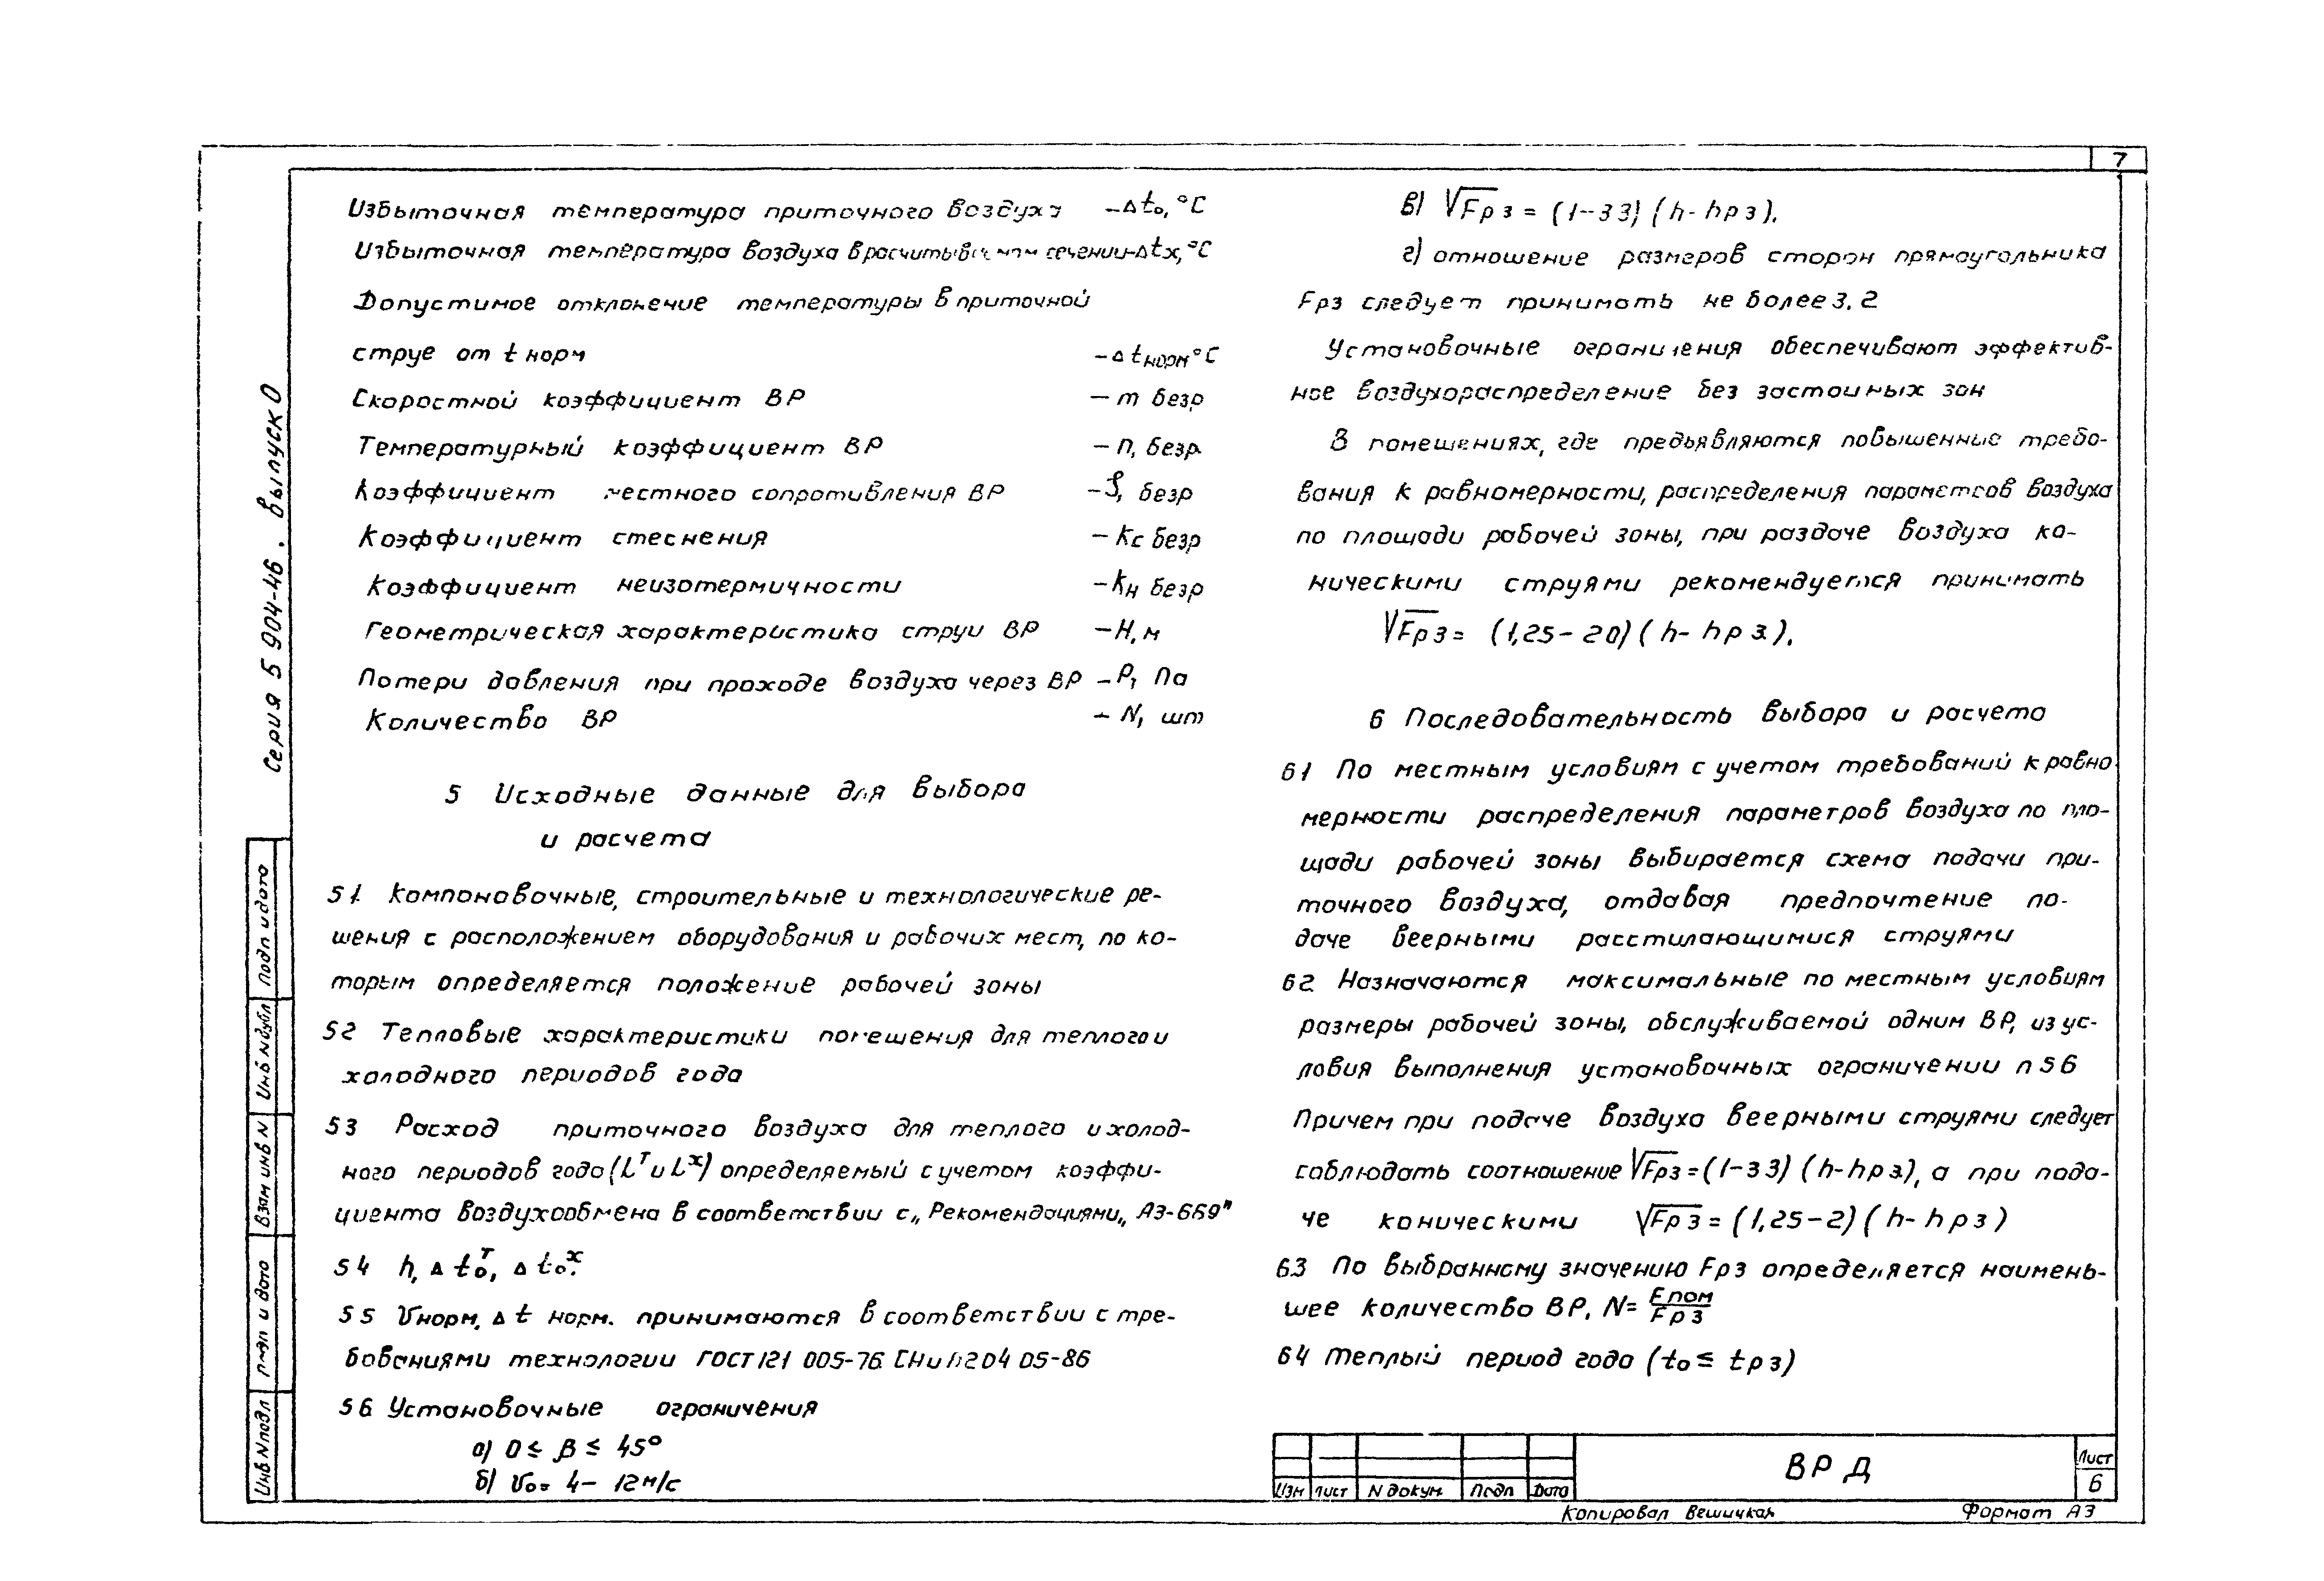 7
Избыточная температура приточного воздуха - Δt₀, °С
Избыточная температура воздуха в расчитываемом сечении - Δtх, °С
Допустимое отклонение температуры в приточной
струе от t норм - Δt норм °С
Скоростной коэффициент ВР - m безр
Температурный коэффициент ВР - n, безр.
Коэффициент местного сопротивления ВР - ζ, безр
Коэффициент стеснения - Kс безр
Коэффициент неизотермичности - Kн безр
Геометрическая характеристика струи ВР - Н, м
Потери давления при проходе воздуха через ВР - Р, Па
Количество ВР - N, шт
5 Исходные данные для выбора
и расчета
5 1. Компоновочные, строительные и технологические ре-
шения с расположением оборудования и рабочих мест, по ко-
торым определяется положение рабочей зоны
5 2 Тепловые характеристики помещения для теплого и
холодного периодов года
5 3 Расход приточного воздуха для теплого и холод-
ного периодов года (Lᵀ и Lˣ) определяемый с учетом коэффи-
циента воздухообмена в соответствии с „Рекомендациями„ АЗ-669"
5 4 h, Δt₀ᵀ, Δt₀ˣ.
5 5 Vнорм, Δt норм. принимаются в соответствии с тре-
бованиями технологии ГОСТ 12 1 005-76 СНиП 2 04 05-86
5 6 Установочные ограничения
а) 0 ≤ β ≤ 45°
б) V₀ = 4 - 12 м/с
в) √Fр з = (1-3 3) (h - hр з).
г) отношение размеров сторон прямоугольника
Fрз следует принимать не более 3. 2
Установочные ограничения обеспечивают эффектив-
ное воздухораспределение без застойных зон
В помещениях, где предъявляются повышенные требо-
вания к равномерности, распределения параметров воздуха
по площади рабочей зоны, при раздаче воздуха ко-
ническими струями рекомендуется принимать
√Fр з = (1,25 - 2 0) (h - hр з.).
6 Последовательность выбора и расчета
6 1 По местным условиям с учетом требований к равно
мерности распределения параметров воздуха по пло-
щади рабочей зоны выбирается схема подачи при-
точного воздуха, отдавая предпочтение по-
даче веерными расстилающимися струями
6 2 Назначаются максимальные по местным условиям
размеры рабочей зоны, обслуживаемой одним ВР, из ус-
ловия выполнения установочных ограничении п 5 6
Причем при подаче воздуха веерными струями следует
соблюдать соотношение √Fрз = (1-3 3) (h - hр з), а при пода-
че коническими √Fр з = (1,25-2) (h - hр з)
6.3 По выбранному значению Fрз определяется наимень-
шее количество ВР, N = Fпом / Fр з
6 4 Теплый период года (t₀ ≤ tр з)
Серия 5 904-46 . выпуск 0
Подп и дата
Инв N дубл
Взам инв N
Подп и дата
Инв N подл
Изм Лист N докум. Подп Дата
ВР Д
Лист
6
Копировал Вешицкая
Формат А3